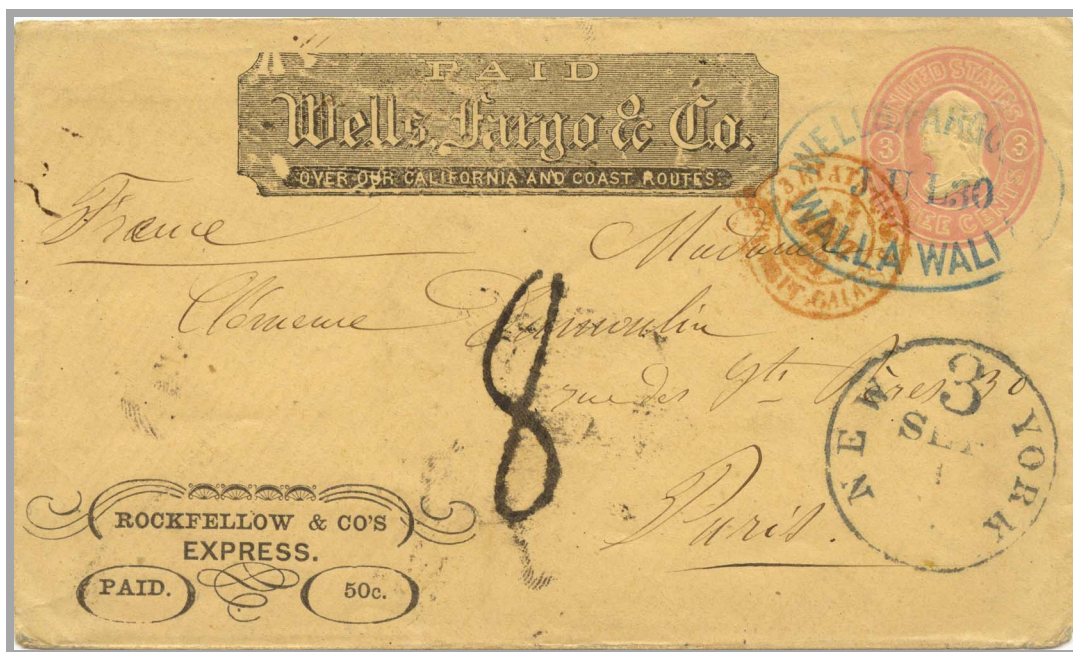 PAID
Wells, Fargo & Co.
OVER OUR CALIFORNIA AND COAST ROUTES.
UNITED STATES
3 3
THREE CENTS
WELLS FARGO
JUL 30
WALLA WALL
France
Madame
Clémence Dumoulin
rue des Sts Pères 30
Paris.
8
NEW YORK
3
SEP
ROCKFELLOW & CO'S
EXPRESS.
PAID. 50c.